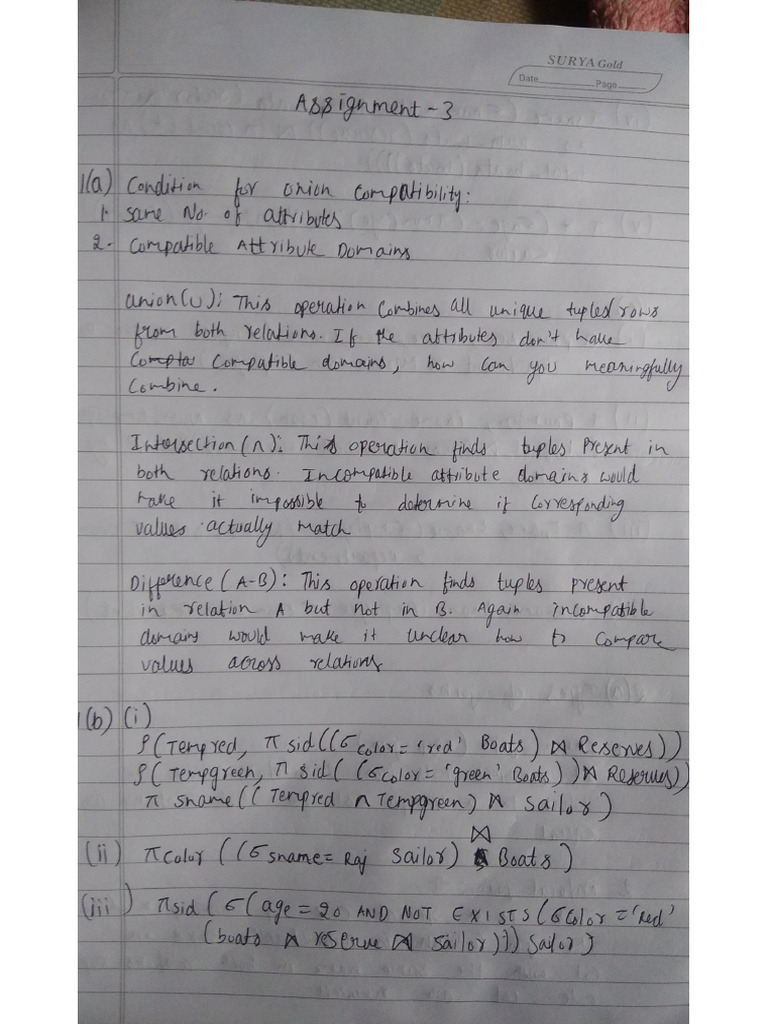 SURYA Gold
Date Page
Assignment - 3
1(a) Condition for union compatibility:
1. same No. of attributes
2. Compatible Attribute Domains
union(∪): This operation combines all unique tuples/rows
from both relations. If the attributes don't have
Compatible domains, how can you meaningfully
Combine.
Intersection(∩): This operation finds tuples Present in
both relations. Incompatible attribute domains would
make it impossible to determine if corresponding
values actually match
Difference (A-B): This operation finds tuples present
in relation A but not in B. Again incompatible
domains would make it unclear how to compare
values across relations
1(b) (i)
ρ(Tempred, π sid((σ color = 'red' Boats) ⋈ Reserves))
ρ(Tempgreen, π sid( (σ color = 'green' Boats) ) ⋈ Reserves))
π sname((Tempred ∩ Tempgreen) ⋈ Sailor)
(ii) π color ((σ sname = Raj Sailor) ⋈ Boats)
(iii) π sid (σ(age = 20 AND NOT EXISTS (σ color = 'Red'
(boats ⋈ reserve ⋈ sailor))) Sailor)